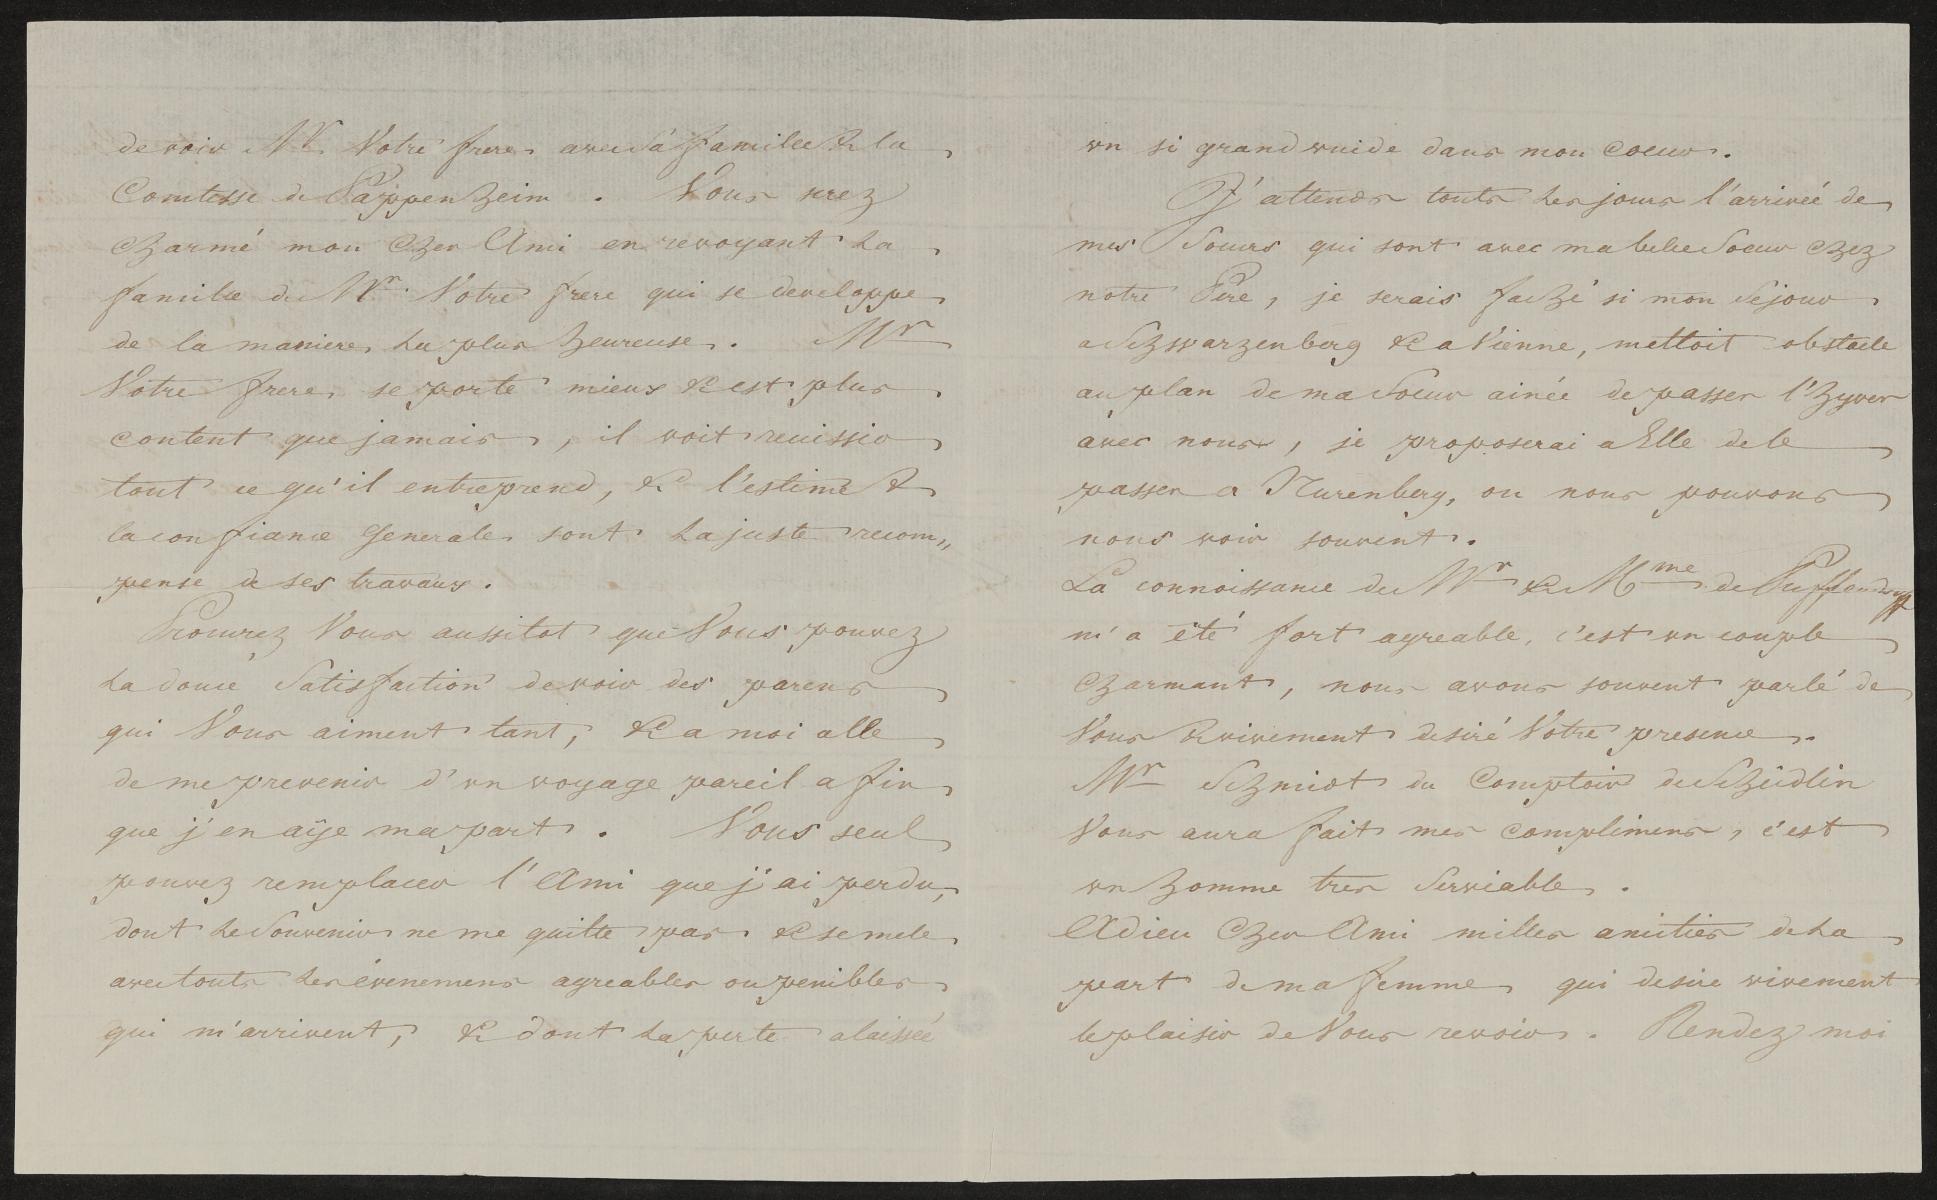 de voir Mr. Votre frere avec Sa famille & la
Comtesse de Pappenheim. Vous serez
charmé mon cher Ami en revoyant La
famille de Mr. Votre frere qui se developpe
de la maniere La plus heureuse. Mr
Votre frere se porte mieux & est plus
content que jamais, il voit reuissir
tout ce qu'il entreprend, & l'estime &
la confiance Generale sont La juste recom„
pense de ses travaux.
Procurez Vous aussitot que Vous pouvez
La douce Satisfaction de voir des parens
qui Vous aiment tant, & a moi celle
de me prevenir d'un voyage pareil afin
que j'en aÿe ma part. Vous seul
pouvez remplacer l'Ami que j'ai perdu,
dont Le Souvenir ne me quitte pas & se mele
avec touts Les évenemens agreables ou penibles
qui m'arrivent, & dont La perte a laissée
un si grand vuide dans mon coeur.
J'attends touts Les jours l'arriveé de
mes Soeurs qui sont avec ma belle Soeur chez
notre Pere, je serais faché si mon Sejour
a Schwarzenberg & a Vienne, mettoit obstacle
au plan de ma Soeur ainée de passer l'hyver
avec nous, je proposerai a Elle de le
passer a Nurenberg, ou nous pouvons
nous voir souvent.
La connoissance de Mr & Mme de Puffendorff
m'a été fort agreable, c'est un couple
charmant, nous avons souvent parlé de
Vous & vivement desiré Votre presence.
Mr Schmidt du Comptoir de Scheidlin
Vous aura fait mes complimens, c'est
un homme tres Serviable.
Adieu cher Ami milles amitiés de La
part de ma femme qui desire vivement
le plaisir de Vous revoir. Rendez moi